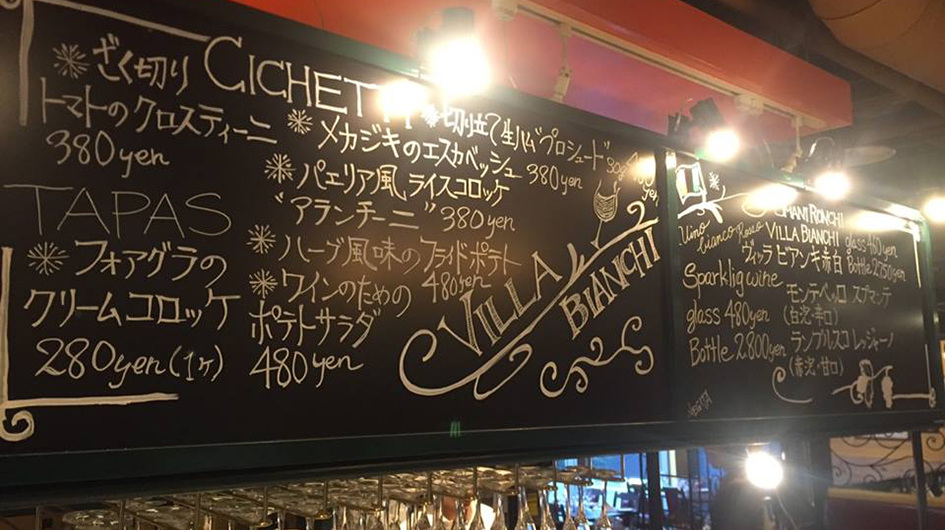 CICHETTI
※ざく切り
トマトのクロスティーニ
380yen
TAPAS
※フォアグラの
クリームコロッケ
280yen(1ヶ)
※切り立て生ハム"プロシュート"
30g
yen
※メカジキのエスカベッシュ
380yen
※パエリア風ライスコロッケ
"アランチーニ" 380yen
※ハーブ風味のフライドポテト
480yen
※ワインのための
ポテトサラダ
480yen
VILLA
BIANCHI
UMANI RONCHI
VILLA BIANCHI
Vino Bianco Rosso
glass 480yen
ヴィッラ ビアンキ 赤白 Bottle 2750yen
Sparkling wine モンテベッロ スプマンテ
glass 480yen (白泡・辛口)
Bottle 2.800yen ランブルスコ レッジャーノ
(赤泡・甘口)